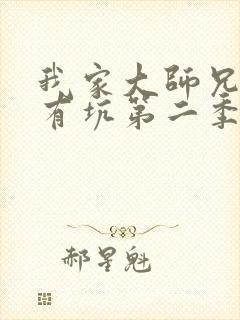 我家大师兄
有坑第二季
郝星魁